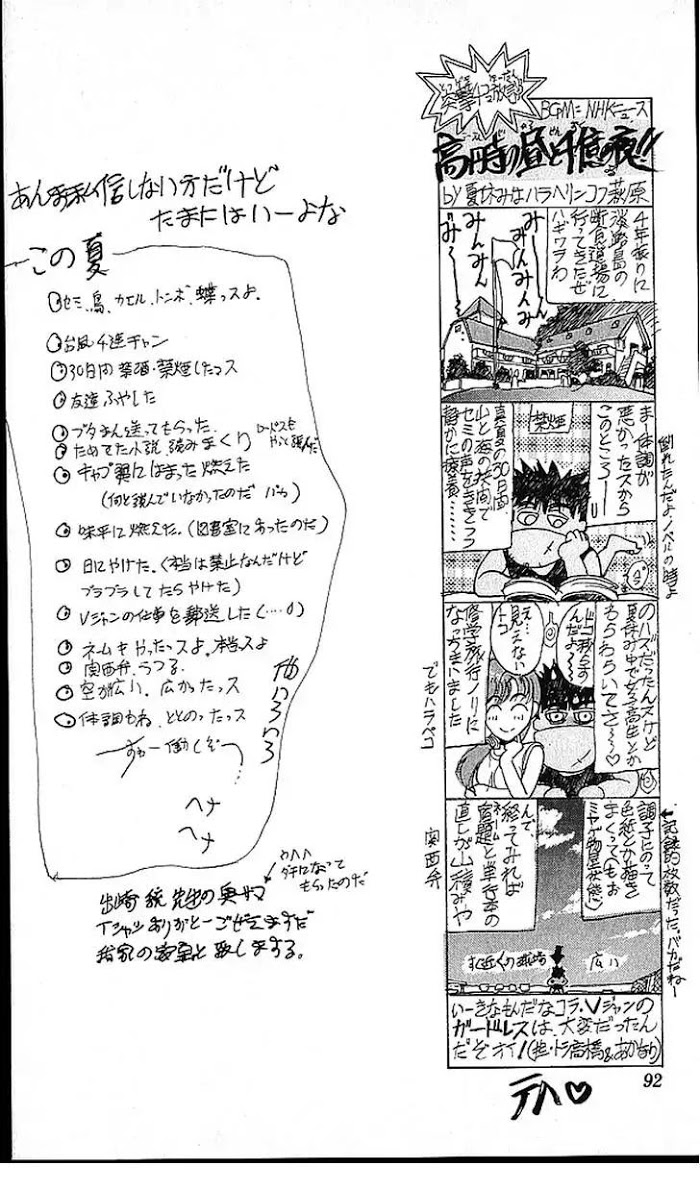 突撃4コマ放送!!
BGM=NHKニュース
高円寺の昼と千億の夜!!
by 夏休みなハラヘリンコフ萩原
4年振りに
淡路島の
断食道場に
行ってきたぜ
ハギワラわ
みーん
みんみんみ
みんみん
みー
禁煙
まー体調が
悪かったスから
このところー
真夏の30日間
山と海の狭間で
セミの声をききつつ
静かに療養……
倒れたんだよ、ノベルの時よ
のハズだったんスけど
夏休み中で女子高生とか
わらわらいてさ〜〜♡
ドコ我人の
んだよ
え…
見えない
トコ
修学旅行ノリに
なっちまいました
でもハラペコ
調子にのって
色紙とか描き
まくって(もお
ミヤゲ物屋状態に)
んで、
終ってみれば
宿題と単行本の
ネーム
直しが山積みや
関西弁
←記録的放散だった。バカだねー
すぐ近くの球場
広い
いーきなもんだなコラ。Vジャンの
ガードレスは、大変だったん
だぞオイ!(担・トラ高橋&あかなり)
92
テヘ♡
あんまし私信しない方だけど
たまにはいーよな
この夏
○セミ、鳥、カエル、トンボ、蝶っスよ。
○台風4連チャン
○30日間 禁酒・禁煙したっス
○友達ふやした
○ブタまん送ってもらった。
○ためてた小説、読みまくり
○キャプ翼にはまった 燃えた
(何と読んでいなかったのだ バカ)
○味平に燃えた。(図書室にあったのだ)
○日にやけた。(本当は禁止なんだけど
ブラブラしてたらやけた)
○Vジャンの仕事を郵送した(…0)
○ネームもやったっスよ。本当っスよ
○関西弁、うつる
○空が広い。広かったっス
○体調もね、ととのったっス
他いろいろ
すぁー働くぞっ
…
ヘナ
ヘナ
ワハハ
ダチになって
もらったのだ
出崎 統 先生の奥サマ
Tシャツありがとーごぜえますだ
我家の家宝と致しまする。